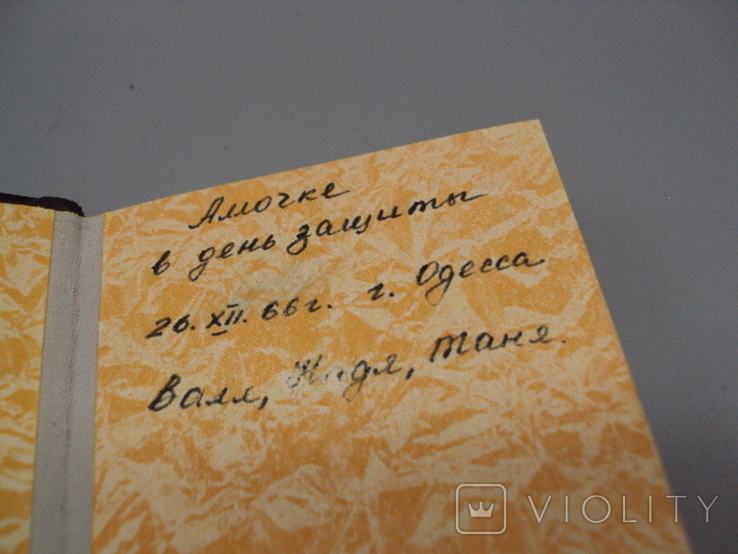 Амочке
в день защиты
26. XII. 66 г. г. Одесса
Валя, Надя, Таня.
VIOLITY